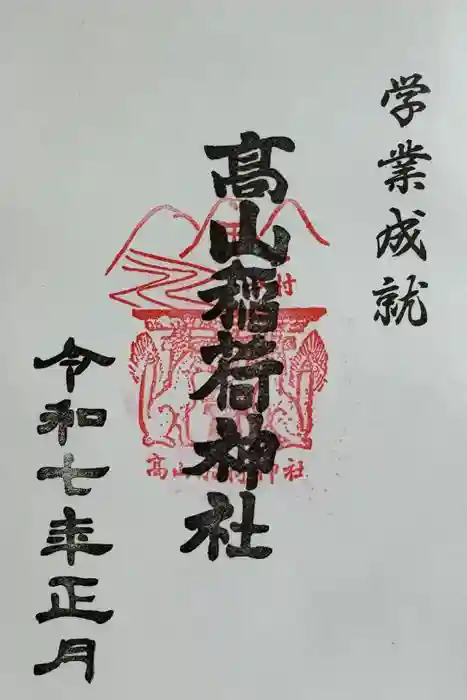 学業成就
髙山稲荷神社
村
高山稲荷神社
令和七年正月